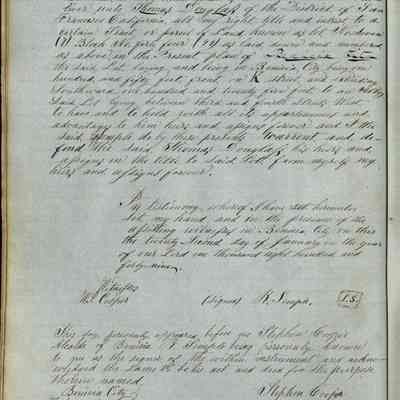 liver unto Thomas Douglass of the District of San
Francisco California, all my right title and interest to a
certain Tract or parcel of Land, known as lot
(7) Block No forty four (44) as laid down and numbered
as above in the Present plan of
the said Lot lying and being in Benicia City being one
hundred and fifty feet, front, on K street and extending
Southward one hundred and twenty five feet to an Alley
Said Lot lying between third and fourth Streets West,
to have and to hold with all its appurtenances and
advantages to him heirs and assigns forever and I the
said Semple do by these presents Warrant and de-
fend the said Thomas Douglass his heirs and
assigns in the title to said Lot from myself my
heirs and assigns forever.
In testimony whereof I have set hereunto
set my hand and in the presence of the
attesting witnesses in Benicia City on this
the twenty second day of January in the year
of our Lord one thousand eight hundred and
forty-nine.
Witness
Cooper (signed) R. Semple. L.S.
This day personally appeared before me Stephen Cooper
Alcalde of Benicia R Semple being personally known
to me as the signer of the within instrument and ackno-
wledged the same to be his act and deed for the purpose
therein named
Benicia City Stephen Cooper